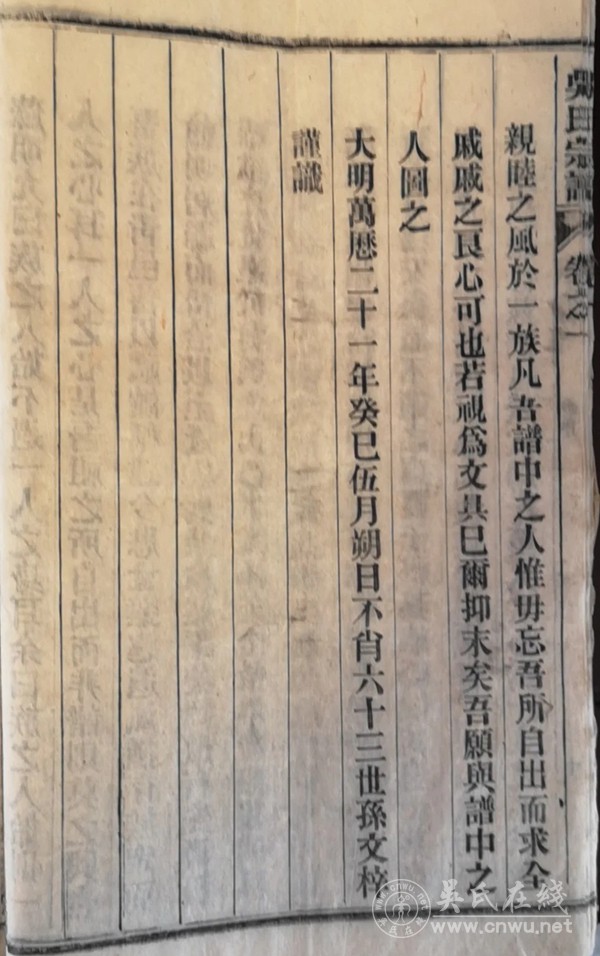 吳氏宗譜 卷之一
親睦之風於一族凡吾譜中之人惟毋忘吾所自出而求全
戚戚之良心可也若視爲文具已爾抑末矣吾願與譜中之
人圖之
大明萬曆二十一年癸巳伍月朔日不肖六十三世孫文梓
謹識
吳氏在线
www.cnwu.net